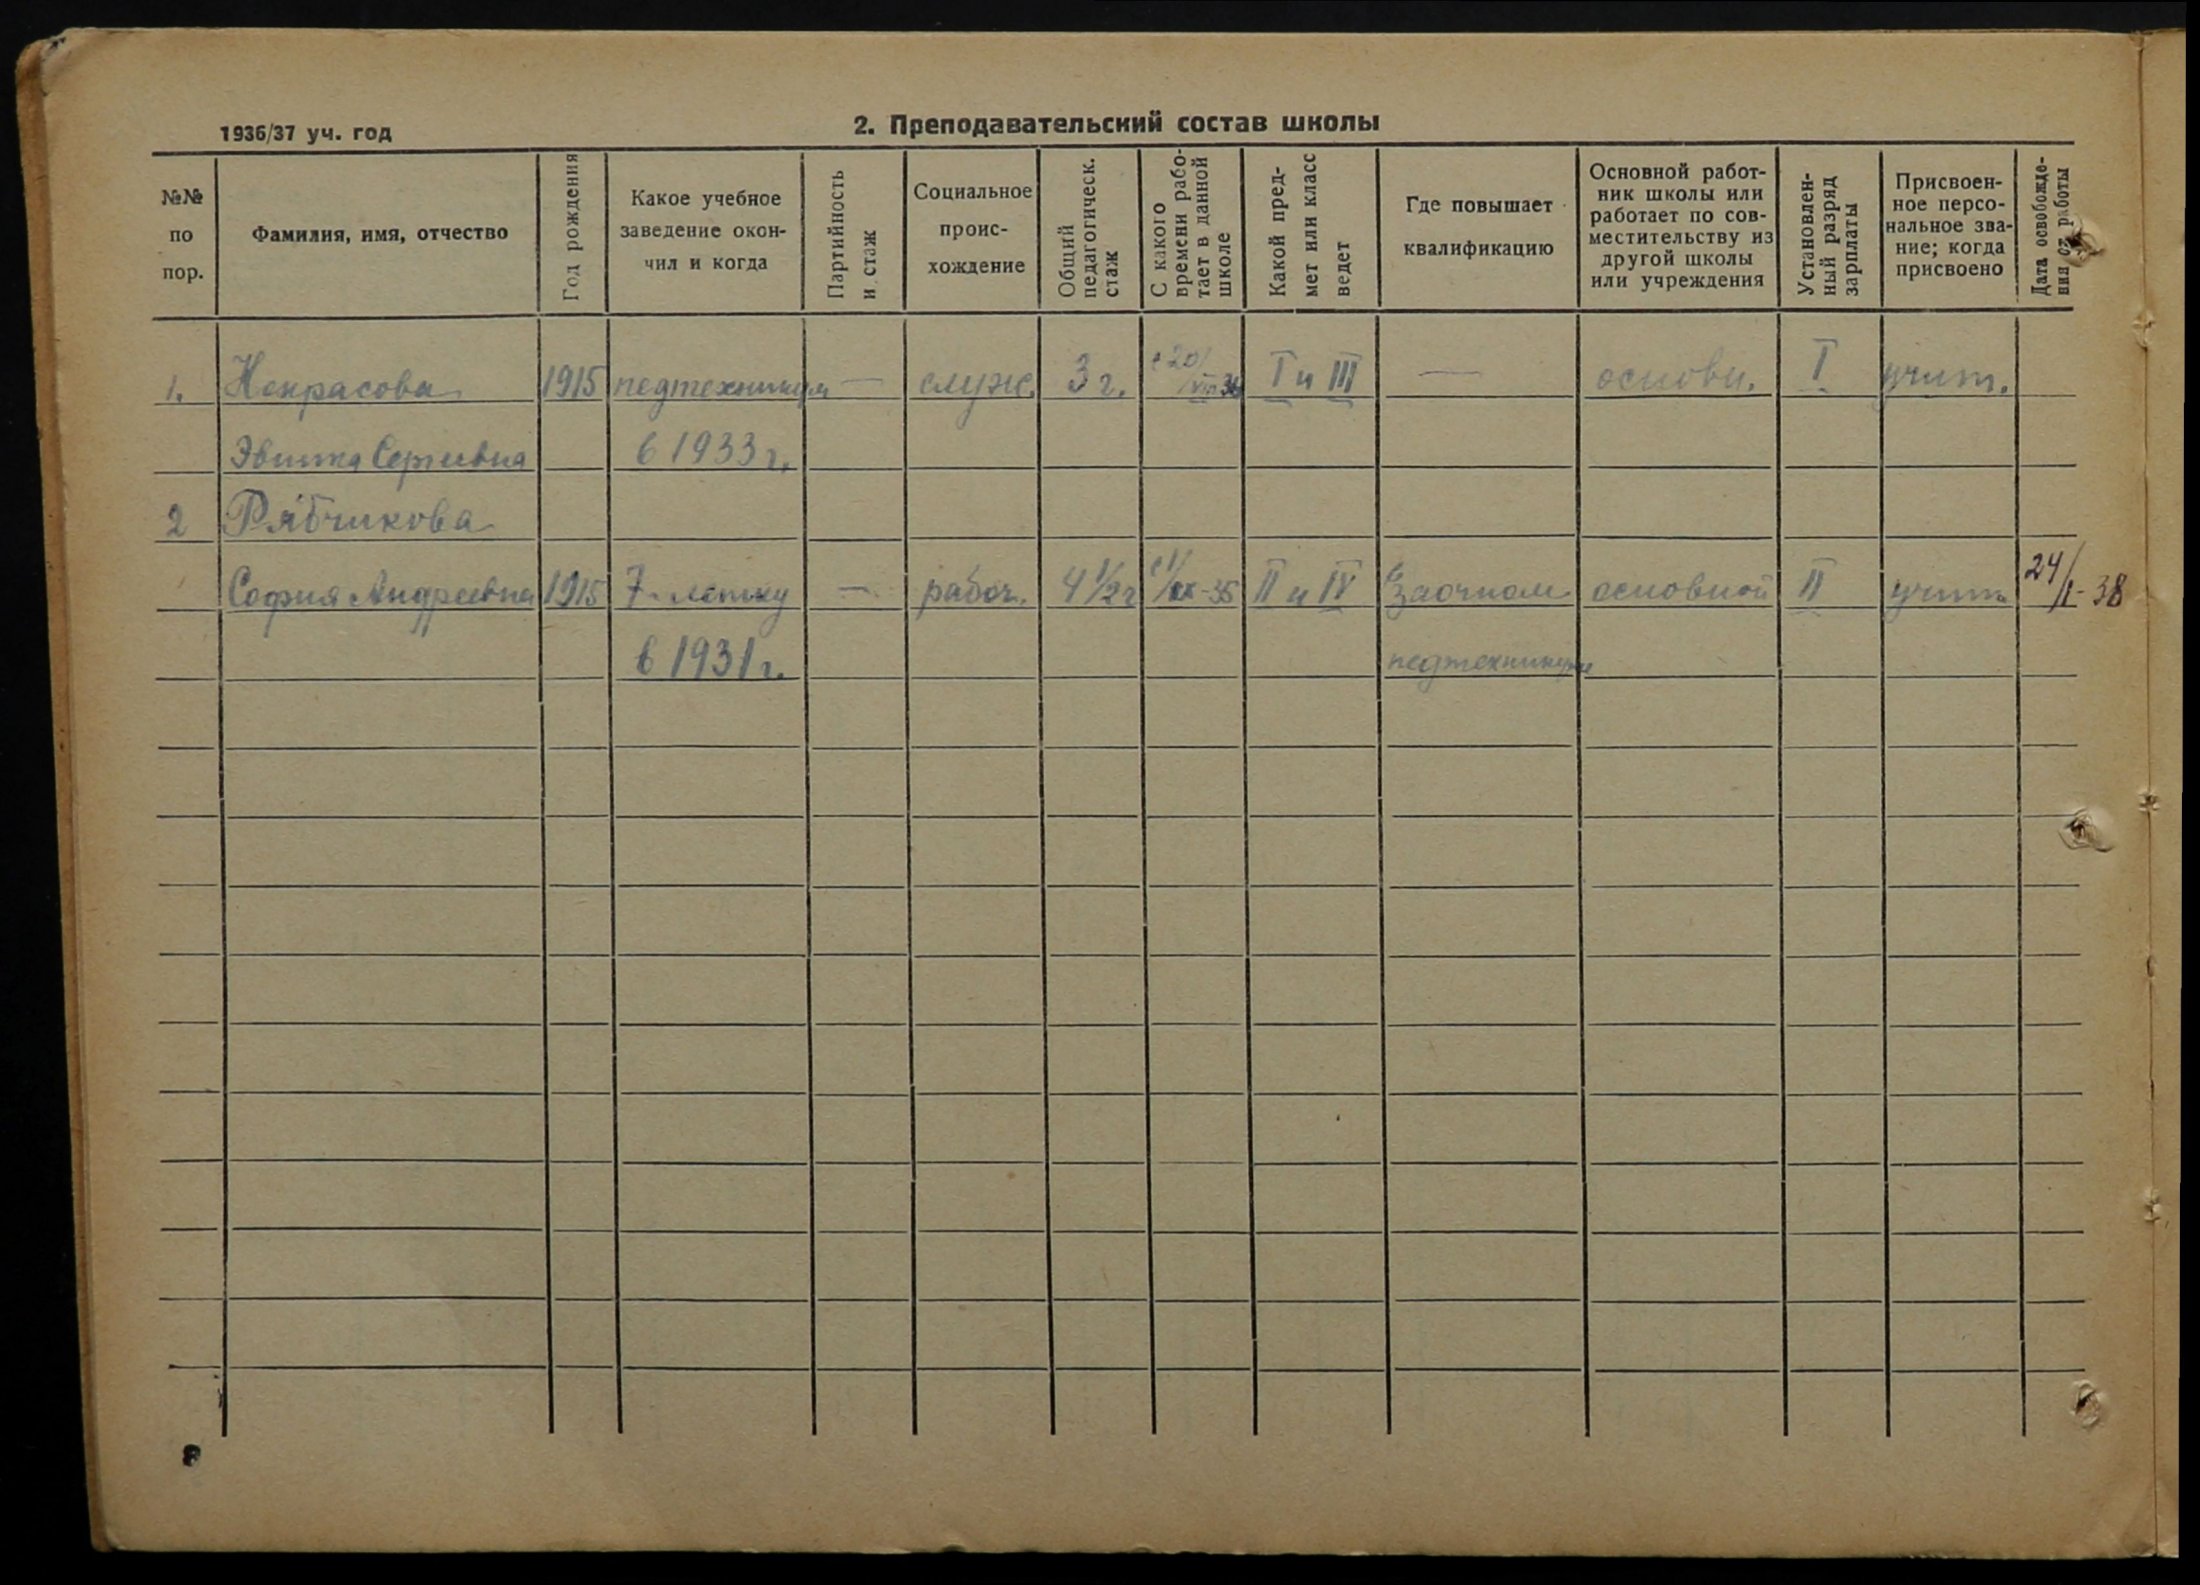 1936/37 уч. год
2. Преподавательский состав школы
№№ по пор.
Фамилия, имя, отчество
Год рождения
Какое учебное заведение окончил и когда
Партийность и стаж
Социальное происхождение
Общий педагогическ. стаж
С какого времени работает в данной школе
Какой предмет или класс ведет
Где повышает квалификацию
Основной работник школы или работает по совместительству из другой школы или учреждения
Установленный разряд зарплаты
Присвоенное персональное звание; когда присвоено
Дата освобождения от работы
1. Некрасова 1915 педтехникум — служ. 3 г. с 20/VIII 36 I и III — основн. I учит.
Сергеевна в 1933 г.
2 Рябчикова
София Андреевна 1915 7-летку — рабоч. 4 1/2 г с 1/IX-35 II и IV Заочном основной II учит. 24/I-38
в 1931 г. педтехникуме
8